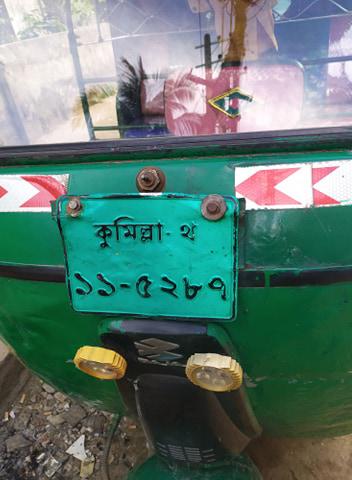 কুমিল্লা-থ
১১-৫২৮৭